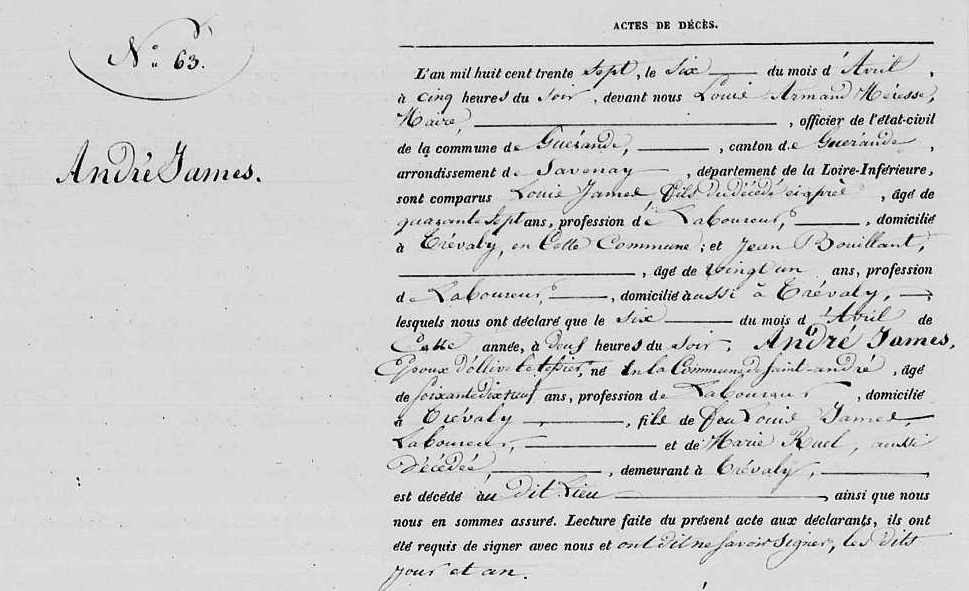 ACTES DE DÉCÈS.
N° 63.
André James.
L'an mil huit cent trente sept, le six du mois d'Avril,
à cinq heures du soir, devant nous Louis Armand Méresse,
Maire, officier de l'état-civil
de la commune de Guérande, canton de Guérande,
arrondissement de Savenay, département de la Loire-Inférieure,
sont comparus Louis James fils du décédé ci après, âgé de
quarante sept ans, profession de Laboureur, domicilié
à Trévaly, en Cette Commune; et Jean Bouillant,
, âgé de vingt un ans, profession
de Laboureur, domicilié aussi à Trévaly,
lesquels nous ont déclaré que le six du mois d'Avril de
Cette année, à deux heures du soir, André James,
Epoux d'ollive Le tessier, né En la Commune de Saint-andré, âgé
de soixante dix neuf ans, profession de Laboureur, domicilié
à Trévaly, fils de feu Louis James
Laboureur, et de Marie Ruel, aussi
décédée, demeurant à Trévaly,
est décédé au dit Lieu, ainsi que nous
nous en sommes assuré. Lecture faite du présent acte aux déclarants, ils ont
été requis de signer avec nous et ont dit ne savoir signer, les dits
jour et an.